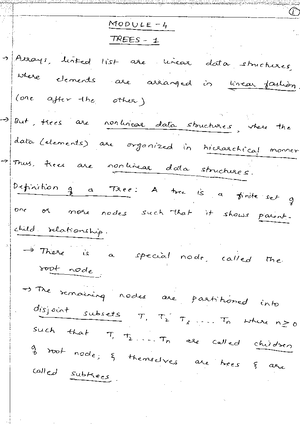 1
MODULE-4
TREES-1
→ Arrays, linked list are linear data structures,
where elements are arranged in linear fashion.
(one after the other)
→ But, trees are nonlinear data structures, where the
data (elements) are organized in hierarchical manner
→ Thus, trees are nonlinear data structures.
Definition of a Tree: A tree is a finite set of
one or more nodes such that it shows parent-
child relationship.
→ There is a special node, called the
root node.
→ The remaining nodes are partitioned into
disjoint subsets T, T2 T3 .... Tn where n≥0
such that T, T2 .... Tn are called children
of root node; & themselves are trees & are
called subtrees.